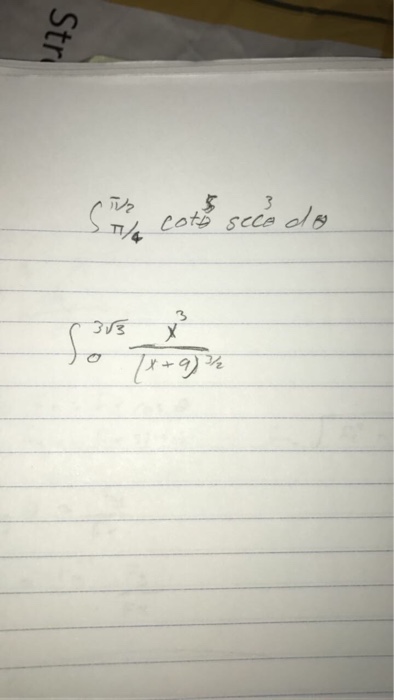 Str
∫ π/4 π/2 cot⁵θ sec³θ dθ
∫ 0 3√3 x³/(x+9)^3/2